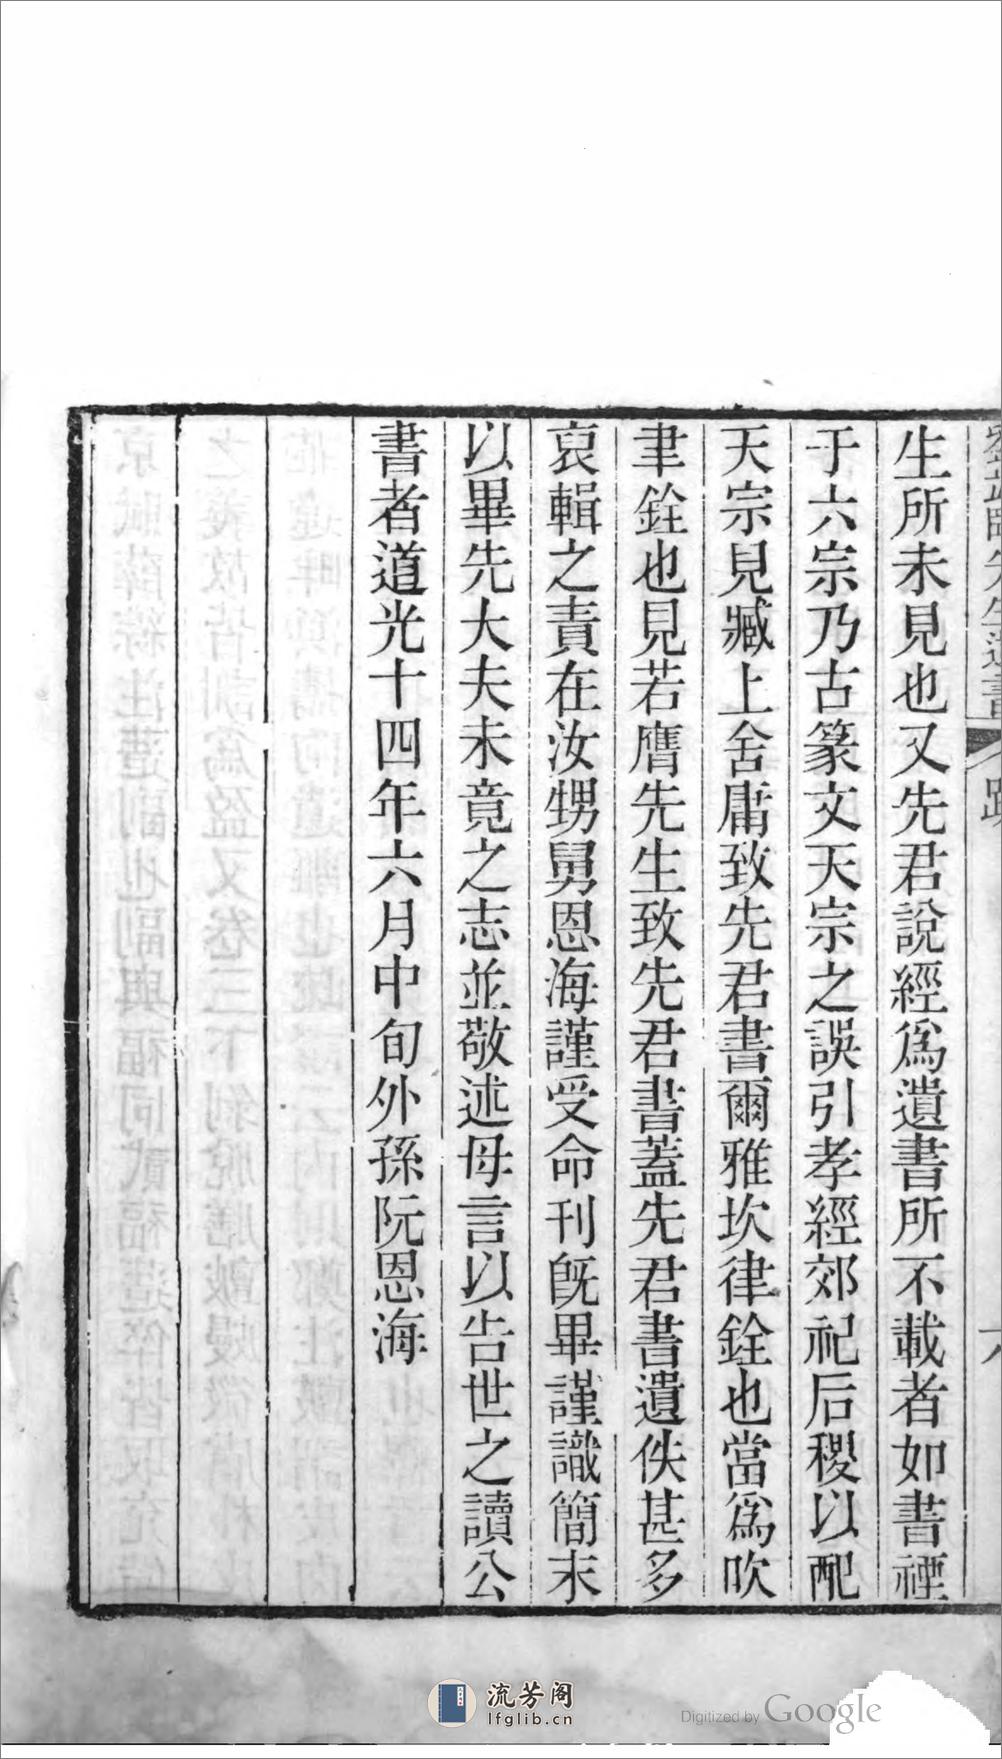 生所未見也又先君說經爲遺書所不載者如書禋
于六宗乃古篆文天宗之誤引孝經郊祀后稷以配
天宗見臧上舍庸致先君書爾雅坎律銓也當爲吹
聿銓也見若膺先生致先君書蓋先君書遺佚甚多
裒輯之責在汝甥舅恩海謹受命刊旣畢謹識簡末
以畢先大夫未竟之志並敬述母言以告世之讀公
書者道光十四年六月中旬外孫阮恩海
流芳阁
lfglib.cn
Digitized by Google